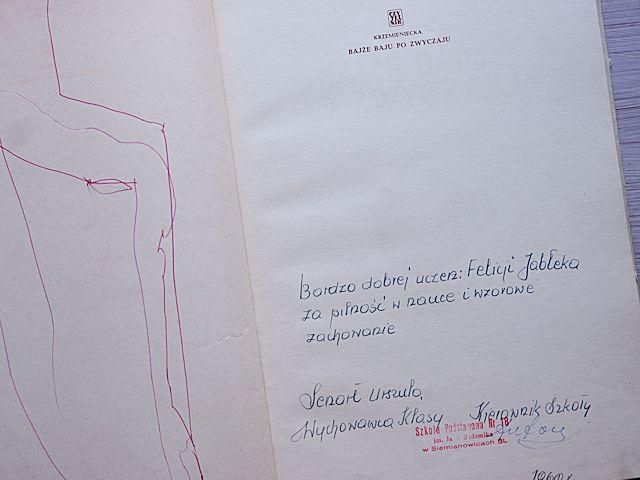 CZY
TEL
NIK
KRZEMIENIECKA
BAJŻE BAJU PO ZWYCZAJU
Bardzo dobrej uczen: Felicji Jabłeka
za pilność w nauce i wzorowe
zachowanie
Senart Urszula
Wychowawca Klasy Kierownik Szkoły
Szkoła Podstawowa Nr 18
im.
w Siemianowicach Śl.